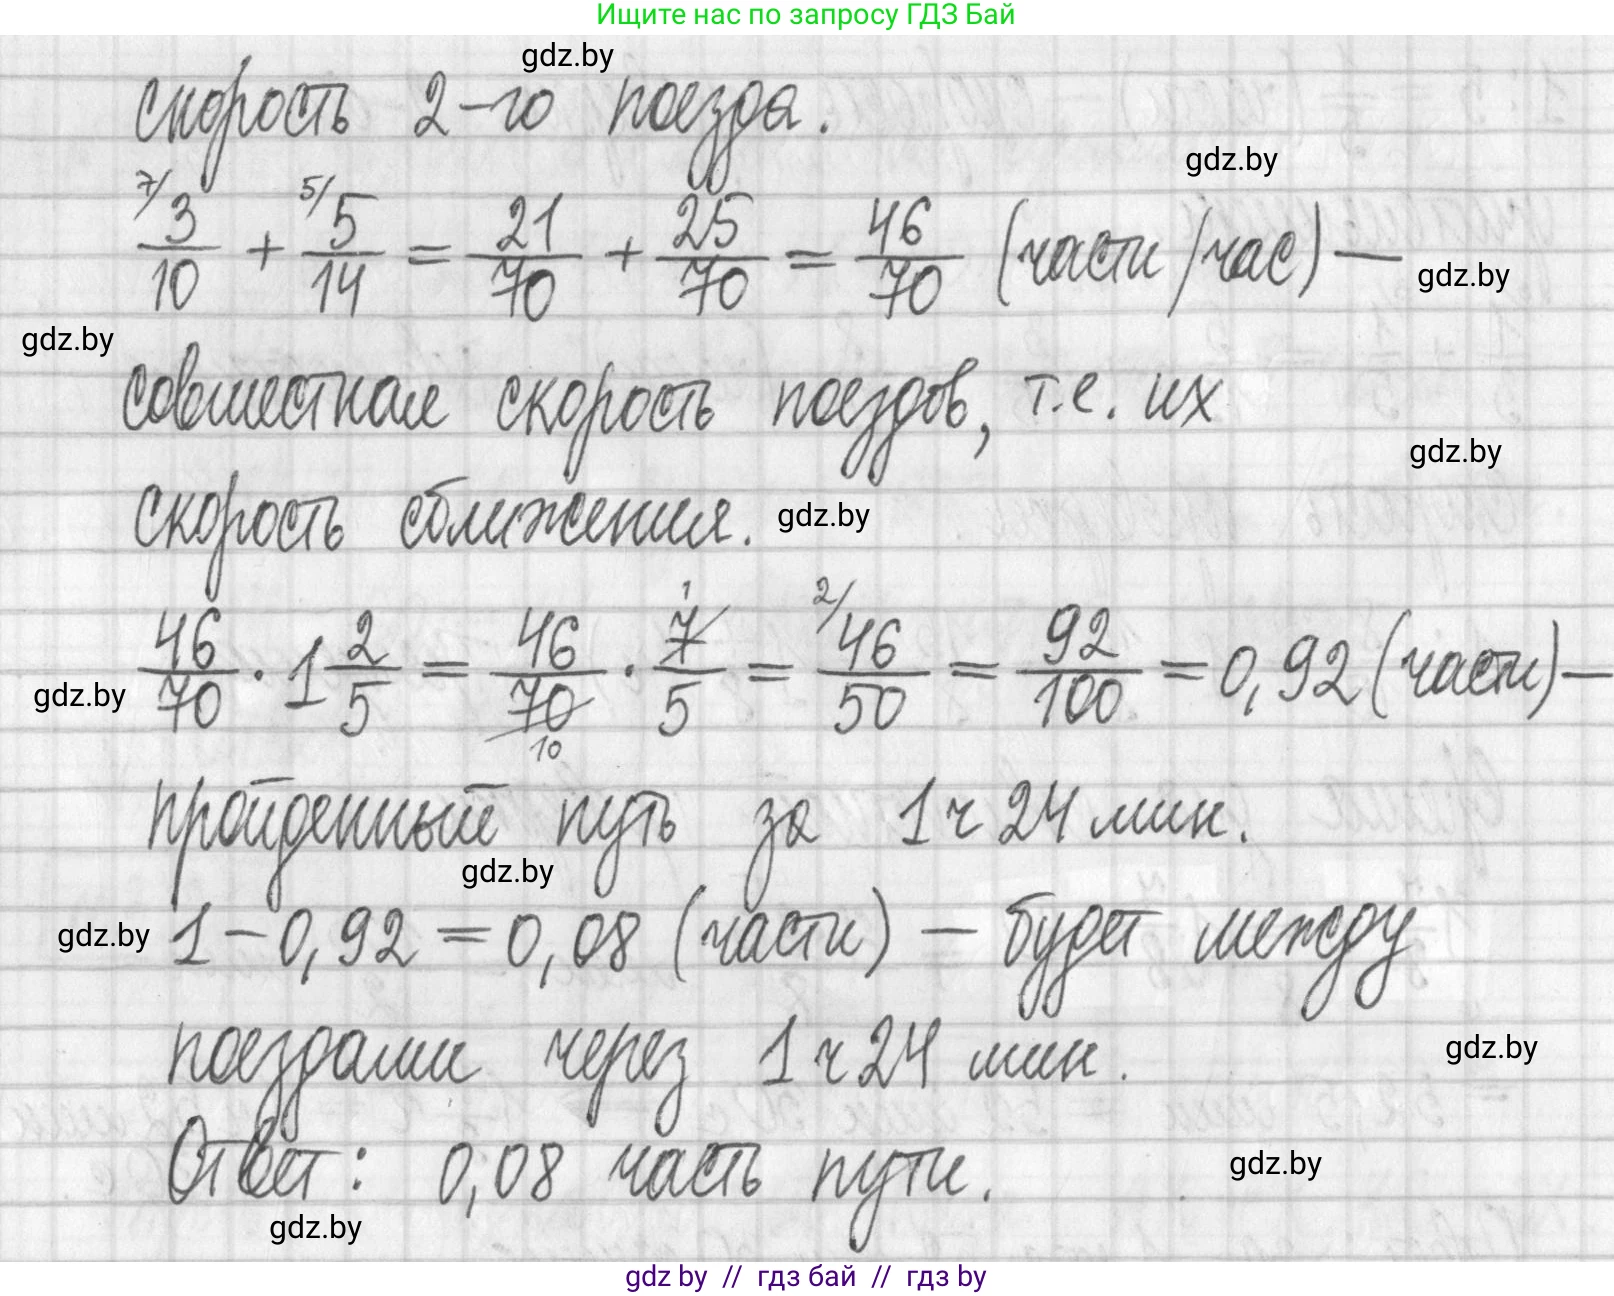 Ищите нас по запросу ГДЗ Бай
gdz.by
скорость 2-го поезда.
gdz.by
7/ 3/10 + 5/ 5/14 = 21/70 + 25/70 = 46/70 (части/час) —
gdz.by
gdz.by
совместная скорость поездов, т.е. их
gdz.by
скорость сближения.
gdz.by
46/70 · 1 2/5 = 46/70 10 · 7/5 1 = 2/ 46/50 = 92/100 = 0,92 (части) —
gdz.by
пройденный путь за 1 ч 24 мин.
gdz.by
gdz.by
1 - 0,92 = 0,08 (части) — будет между
поездами через 1 ч 24 мин.
gdz.by
Ответ: 0,08 часть пути.
gdz.by
gdz.by
gdz by // гдз бай // гдз by